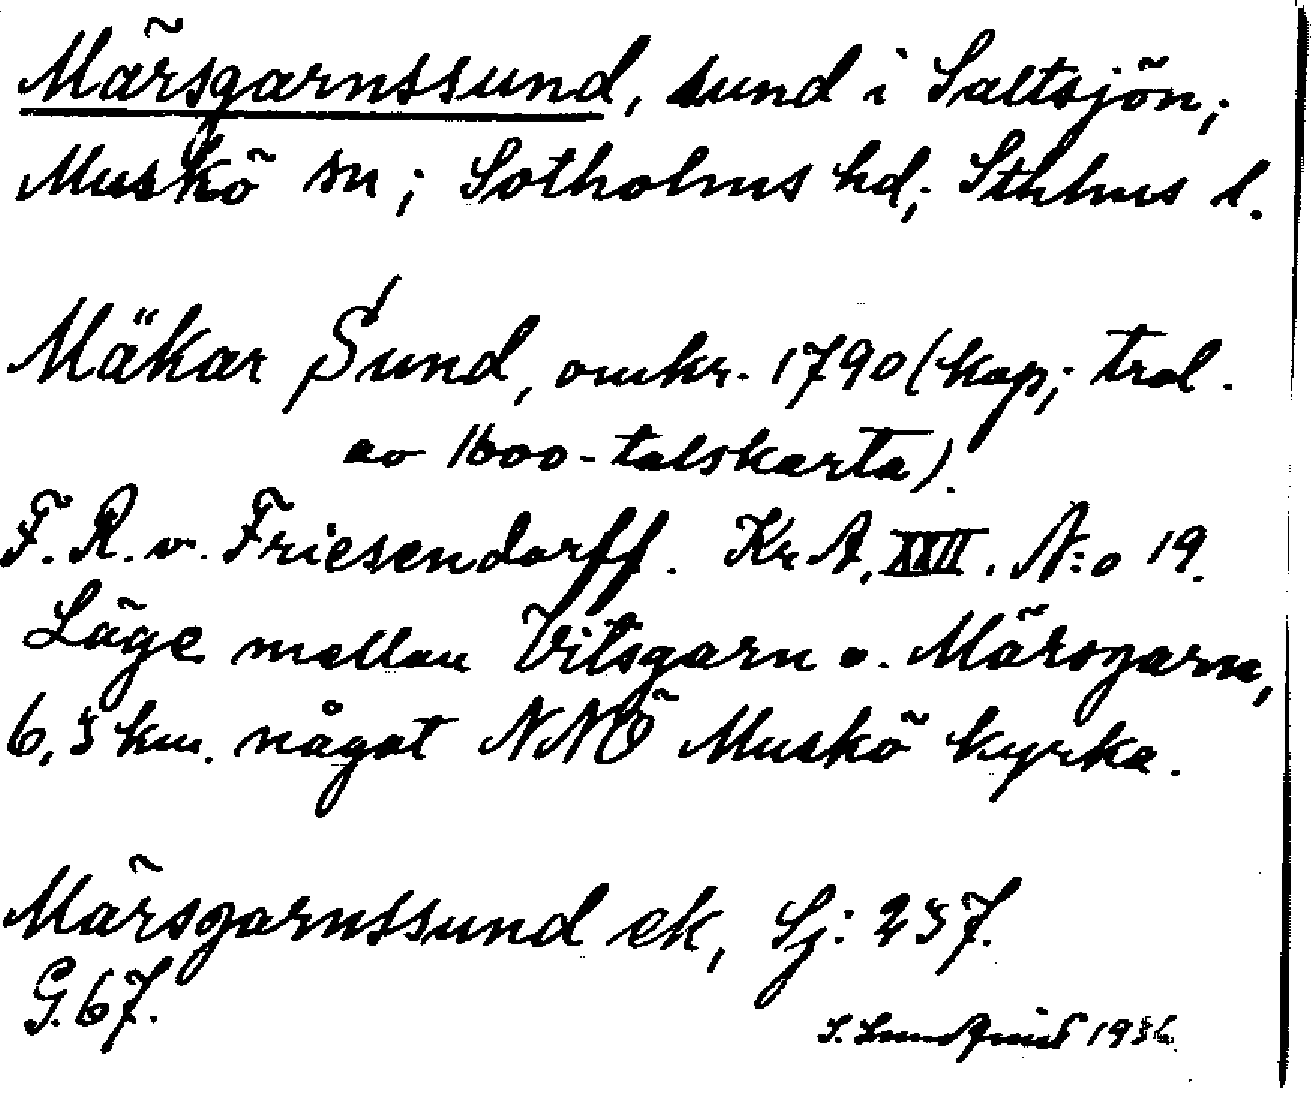 Märsgarnssund, sund i Saltsjön;
Muskö sn; Sotholms hd; Sthlms l.
Mäkar Sund, omkr. 1790 (kop; trol.
av 1600-talskarta).
F. R. v. Friesendorff. Kr A, XXII. N:o 19.
Läge mellan Vitsgarn o. Märsgarn,
6,5 km. något NNÖ Muskö kyrka.
Märsgarnssund ek, Sj: 237.
G. 67.
S. Lundqvist 1936